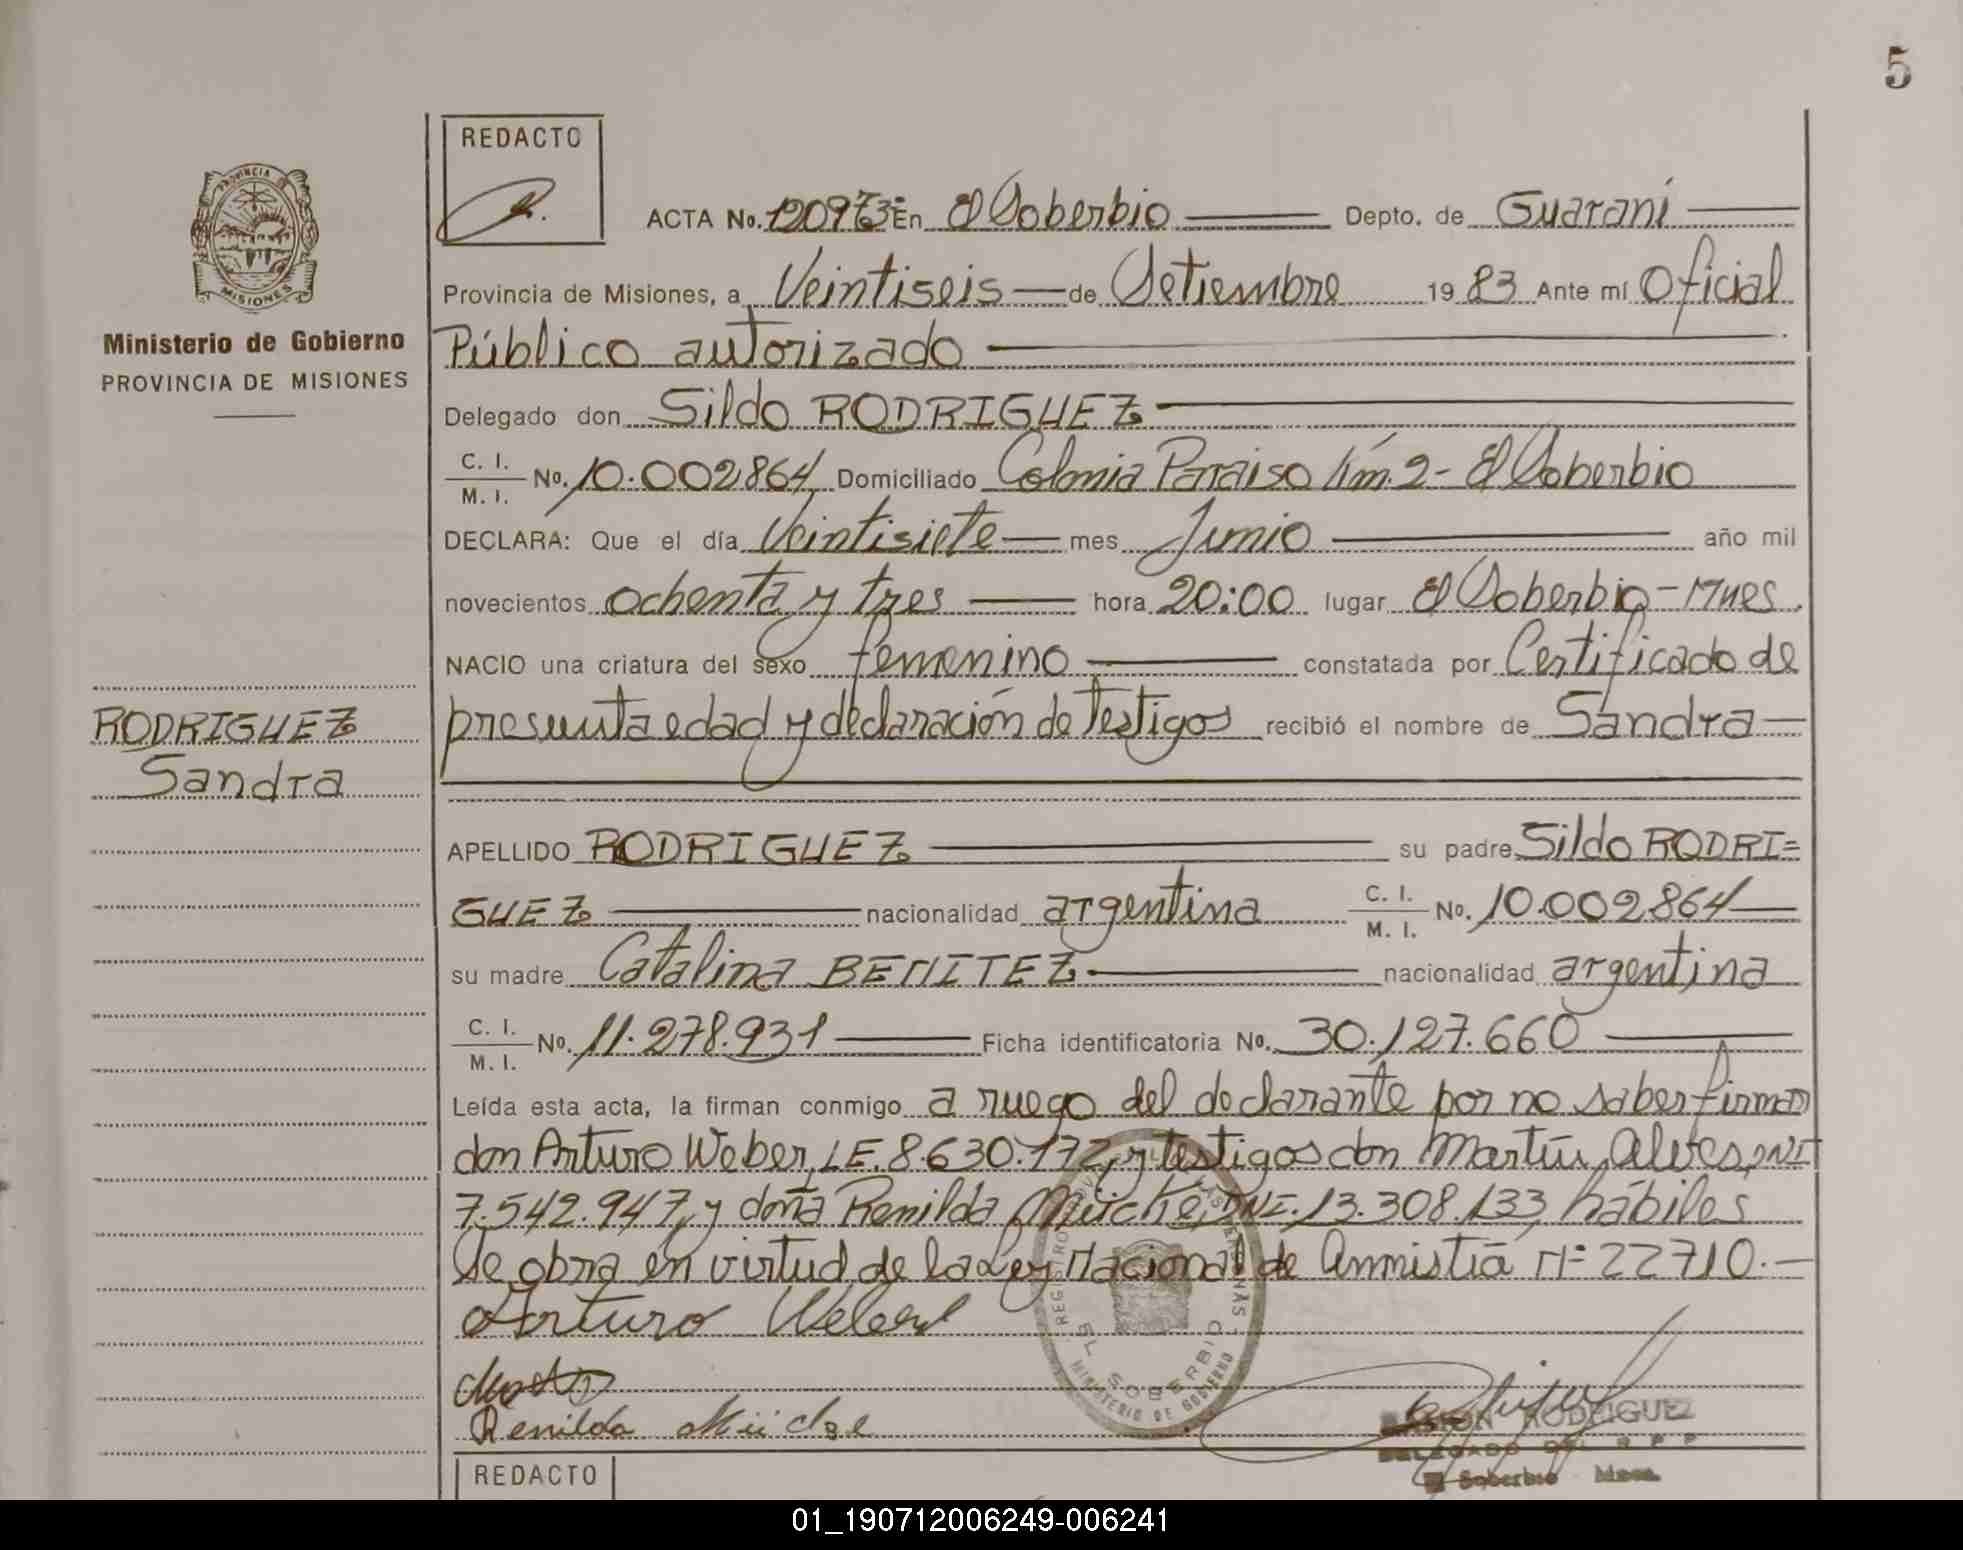 5
REDACTO
PROVINCIA DE
MISIONES
Ministerio de Gobierno
PROVINCIA DE MISIONES
RODRIGUEZ
Sandra
ACTA No. En El Soberbio Depto. de Guaraní
Provincia de Misiones, a Veintiseis de Setiembre 1983 Ante mí Oficial
Público autorizado
Delegado don Sildo RODRIGUEZ
C. I. / M. I. No. 10.002864 Domiciliado Colonia Paraiso km. 2 - El Soberbio
DECLARA: Que el día Veintisiete mes Junio año mil
novecientos ochenta y tres hora 20:00 lugar El Soberbio - Mnes.
NACIO una criatura del sexo femenino constatada por Certificado de
presunta edad y declaración de testigos recibió el nombre de Sandra
APELLIDO RODRIGUEZ su padre Sildo RODRI=
GUEZ nacionalidad argentina C. I. / M. I. No. 10.002864
su madre Catalina BENITEZ nacionalidad argentina
C. I. / M. I. No. 11.278.931 Ficha identificatoria No. 30.127.660
Leída esta acta, la firman conmigo a ruego del declarante por no saber firmar
don Arturo Weber, L.E. 8.630.172, y testigos don Martín Alves, DNI
7.542.947, y doña Renilda Mücke, DNI. 13.308.133, hábiles
Se obra en virtud de la Ley Nacional de Amnistía Nº 22710.-
Arturo Weber
Renilda Mücke
EL SOBERBIO
MINISTERIO DE GOBIERNO
RODRIGUEZ
DELEGADO
El Soberbio Mnes.
REDACTO
01_190712006249-006241